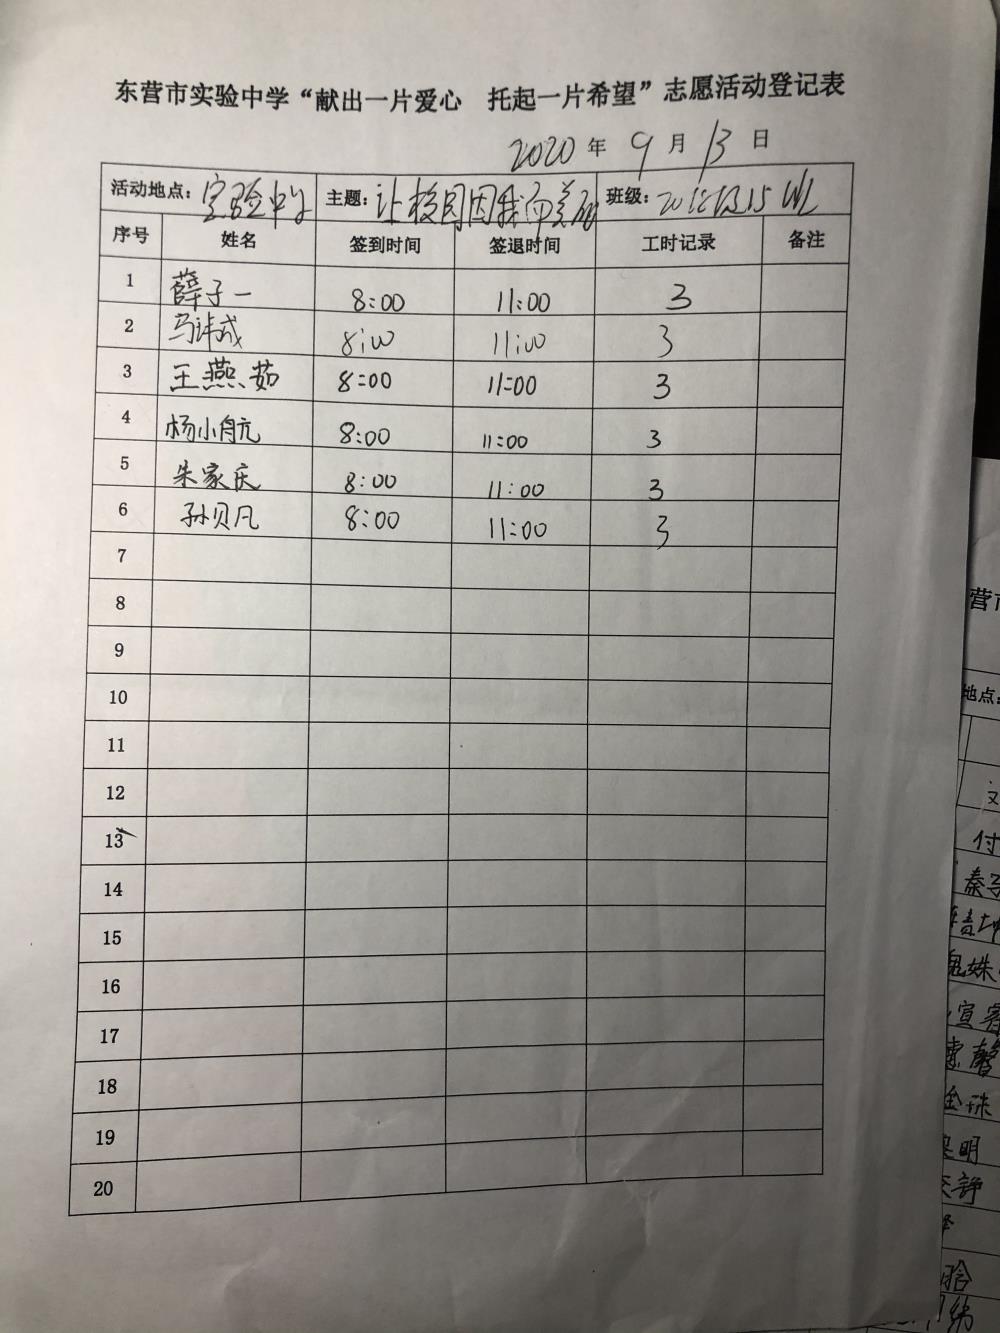 东营市实验中学“献出一片爱心 托起一片希望”志愿活动登记表
2020 年 9 月 13 日
活动地点：实验中学 主题：让校园因我而美丽 班级：15
序号 姓名 签到时间 签退时间 工时记录 备注
1 薛子一 8:00 11:00 3
2 马 成 8:00 11:00 3
3 王燕茹 8:00 11:00 3
4 杨小航 8:00 11:00 3
5 朱家庆 8:00 11:00 3
6 孙贝凡 8:00 11:00 3
7
8
9
10
11
12
13
14
15
16
17
18
19
20
营
地点：
付
秦
姝
宣
馨
金珠
明